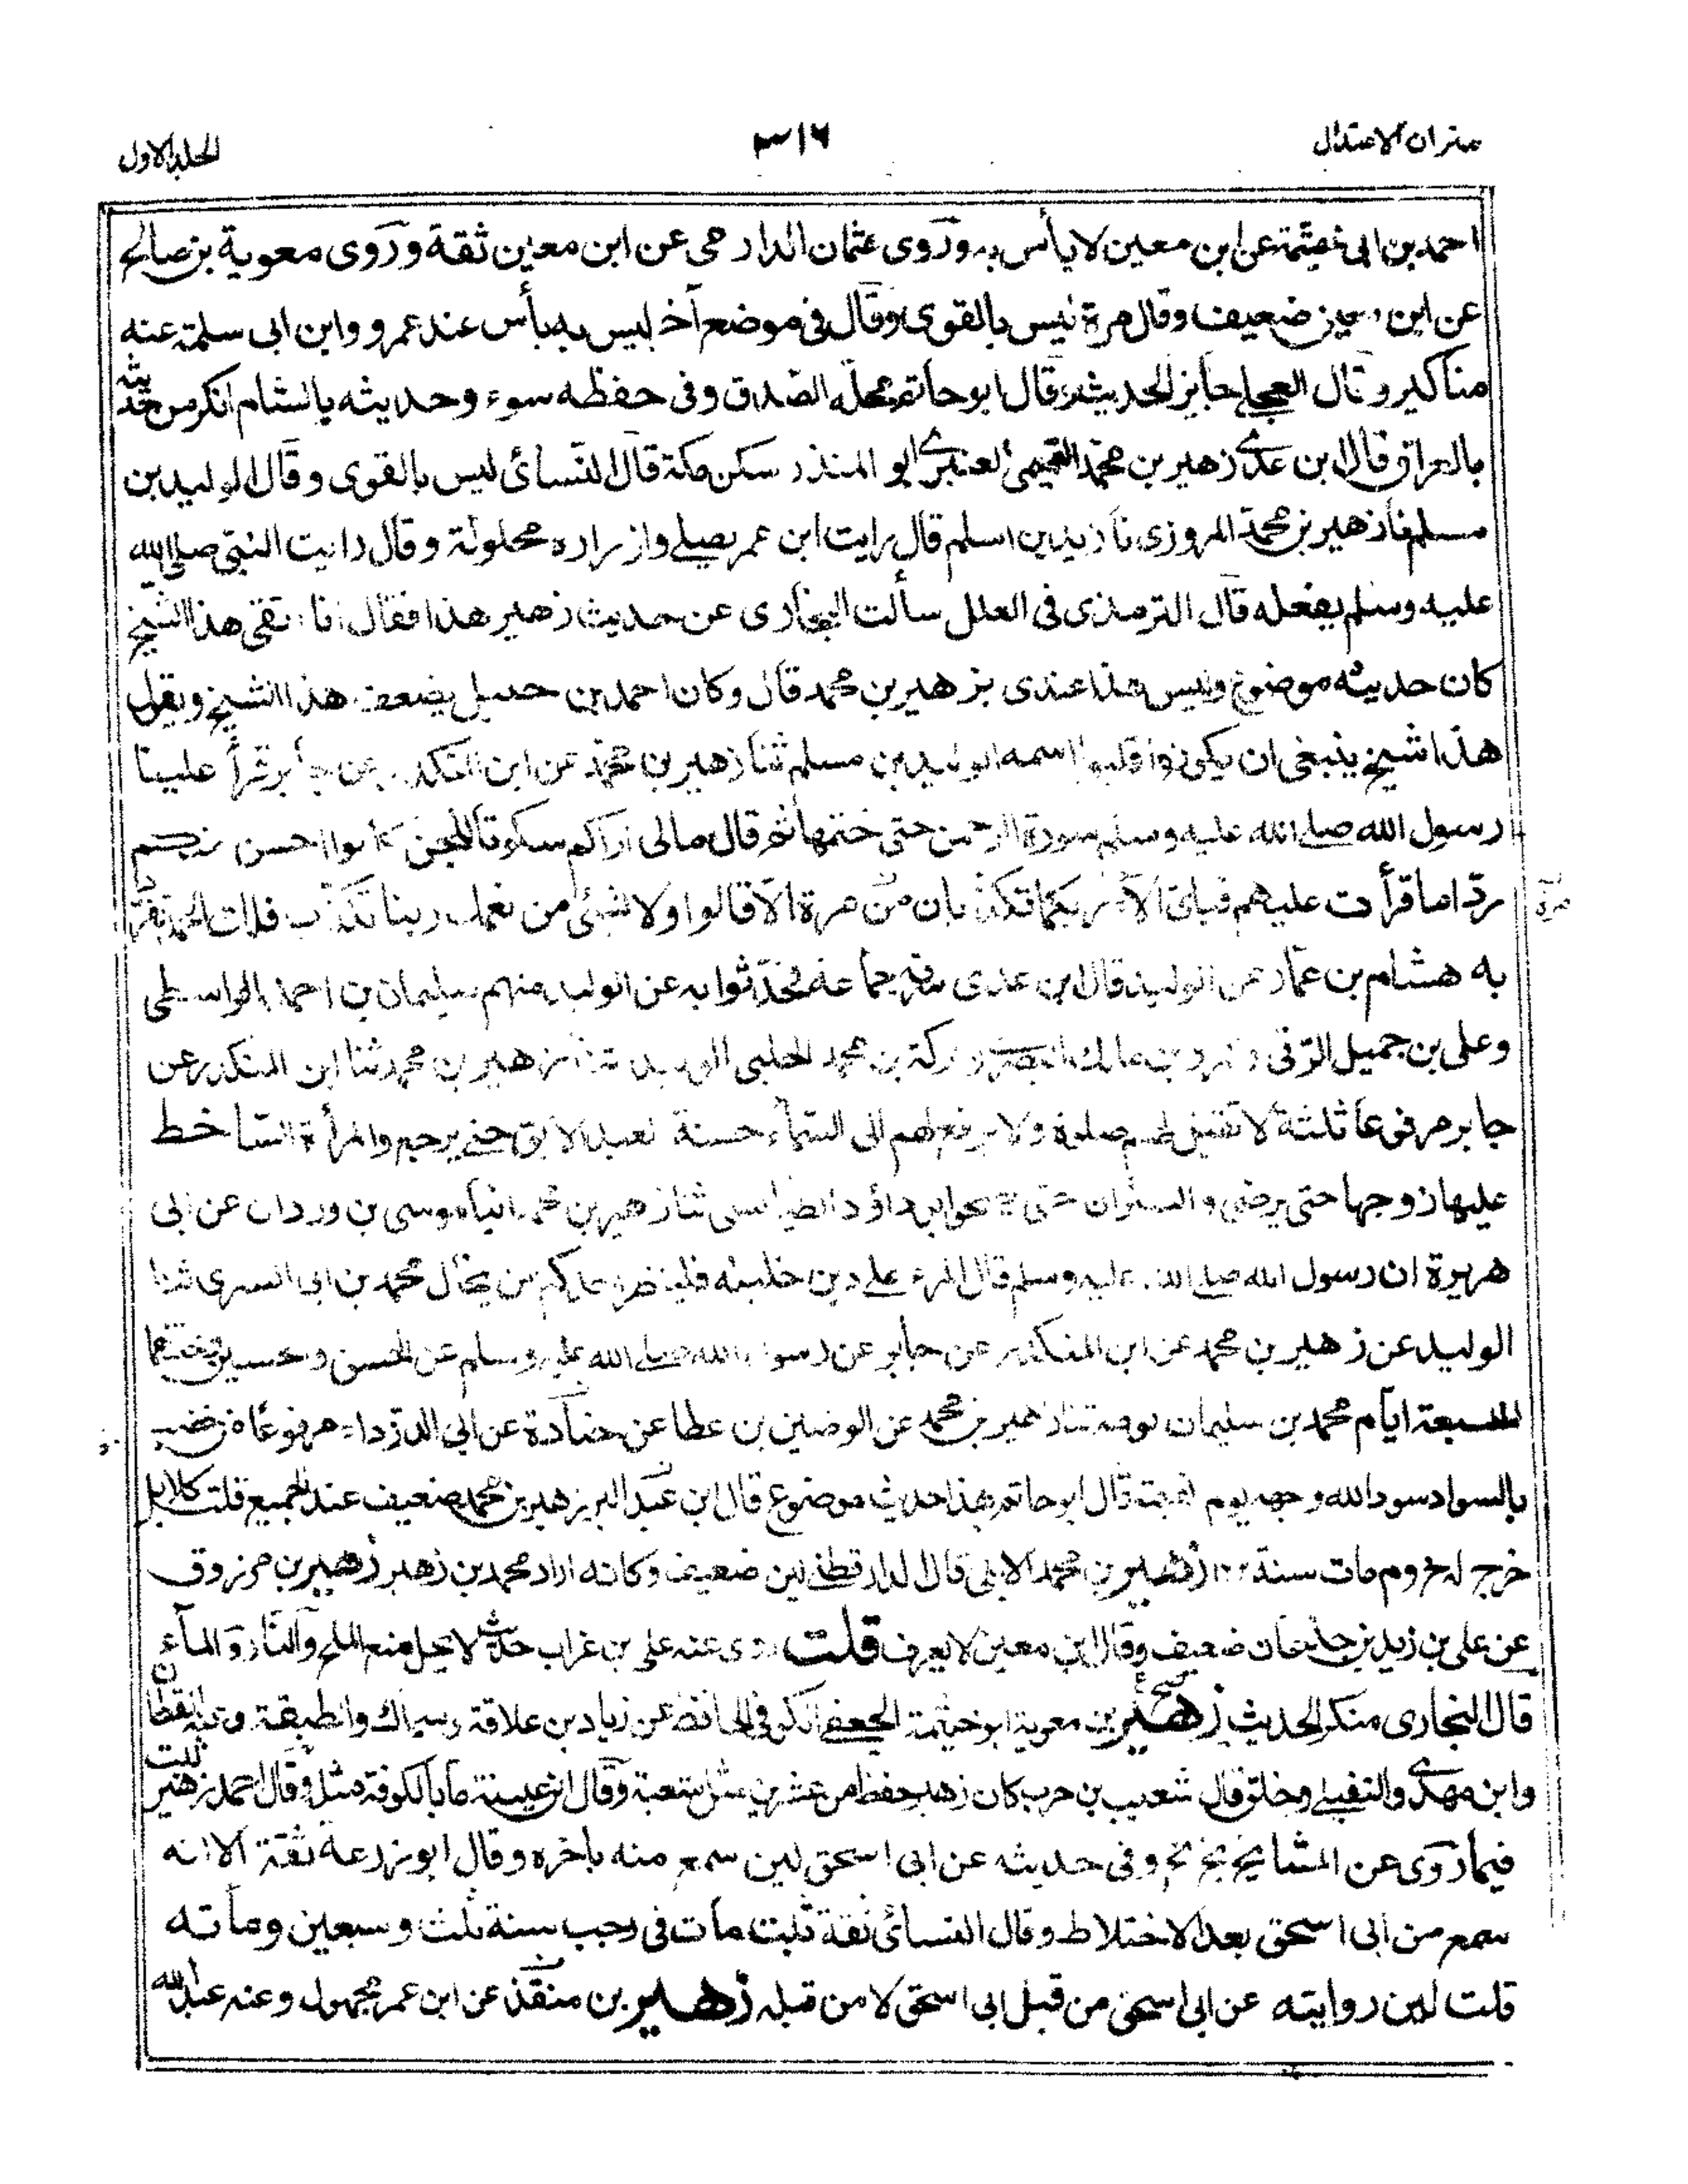 ميزان الاعتدال
٣١٦
الجلد الاول
احمد بن ابى خيثمة عن ابن معين لا بأس به وروى عثمان الدارمى عن ابن معين ثقة وروى معوية بن صالح
عن ابن معين ضعيف وقال مرة ليس بالقوى وقال فى موضع آخر ليس به بأس عند عمرو وابن ابى سلمة عنه
مناكير وقال العجلى جايز الحديث وقال ابو حاتم محله الصدق وفى حفظه سوء وحديثه بالشام انكر من حديثه
بالعراق قال ابن عدى زهير بن محمد التميمى العنبرى ابو المنذر سكن مكة قال النسائى ليس بالقوى وقال الوليد بن
مسلم نا زهير بن محمد المروزى نا زيد بن اسلم قال رايت ابن عمر يصلى وازراره محلولة وقال رايت النبى صلى الله
عليه وسلم يفعله قال الترمذى فى العلل سألت البخارى عن حديث زهير هذا فقال انا اتقى هذا الشيخ
كان حديثه موضوع وليس هذا عندى بزهير بن محمد قال وكان احمد بن حنبل يضعف هذا الشيخ ويقول
هذا شيخ ينبغى ان يكونوا قلبوا اسمه الوليد بن مسلم ثنا زهير بن محمد عن ابن المنكدر عن جابر قرأ علينا
رسول الله صلى الله عليه وسلم سورة الرحمن حتى ختمها ثم قال مالى اراكم سكوتا للجن كانوا احسن منكم
ردا ما قرأت عليهم فباى آلاء ربكما تكذبان من مرة الا قالوا ولا بشئ من نعمك ربنا نكذب فلك الحمد تفرد
مرة
به هشام بن عمار عن الوليد قال ابن عدى جماعة فحدثوا به عن الوليد منهم سليمان بن احمد الواسطى
وعلى بن جميل الرقى وعمرو بن مالك البصرى وبركة بن محمد الحلبى الوليد ثنا زهير بن محمد ثنا ابن المنكدر عن
جابر مرفوعا ثلثة لا تقبل لهم صلوة ولا يرفع لهم الى السماء حسنة العبد الآبق حتى يرجع والمرأة الساخط
عليها زوجها حتى يرضى والسكران حتى يصحو ابو داؤد الطيالسى ثنا زهير بن محمد انبأ موسى بن وردان عن ابى
هريرة ان رسول الله صلى الله عليه وسلم قال المرء على دين خليله فلينظر احدكم من يخال محمد بن ابى السرى ثنا
الوليد عن زهير بن محمد عن ابن المنكدر عن جابر عن رسول الله صلى الله عليه وسلم عن الحسن وحسين وختنهما
لسبعة ايام محمد بن سليمان بومة ثنا زهير بن محمد عن الوضين بن عطا عن جنادة عن ابى الدرداء مرفوعا من خضب
بالسواد سود الله وجهه يوم القيمة قال ابو حاتم هذا حديث موضوع قال ابن عبد البر زهير بن محمد ضعيف عند الجميع قلت كلا بل
خرج له خ وم مات سنة زهير بن محمد الابلى قال الدارقطنى لين ضعيف وكانه اراد محمد بن زهير زهير بن مرزوق
عن على بن زيد بن جدعان ضعيف وقال ابن معين لا يعرف قلت روى عنه على بن غراب حديث لا يحل منع الملح والنار والمآء
قال البخارى منكر الحديث زهير بن معوية ابو خيثمة الجعفى الكوفى الحافظ عن زياد بن علاقة وسماك والطبقة وعنه القطان
وابن مهدى والنفيلى وخلق قال شعيب بن حرب كان زهير احفظ من عشرين مثل شعبة وقال ابن عيينة ما بالكوفة مثله وقال احمد زهير ثبت
فيما روى عن المشايخ بخ بخ وفى حديثه عن ابى اسحق لين سمع منه باخره وقال ابو زرعة ثقة الا انه
سمع من ابى اسحق بعد الاختلاط وقال النسائى ثقة ثبت مات فى رجب سنة ثلث وسبعين ومائه
قلت لين روايته عن ابى اسحق من قبل ابى اسحق لا من قبله زهير بن منقذ عن ابن عمر مجهول وعنه عبد الله